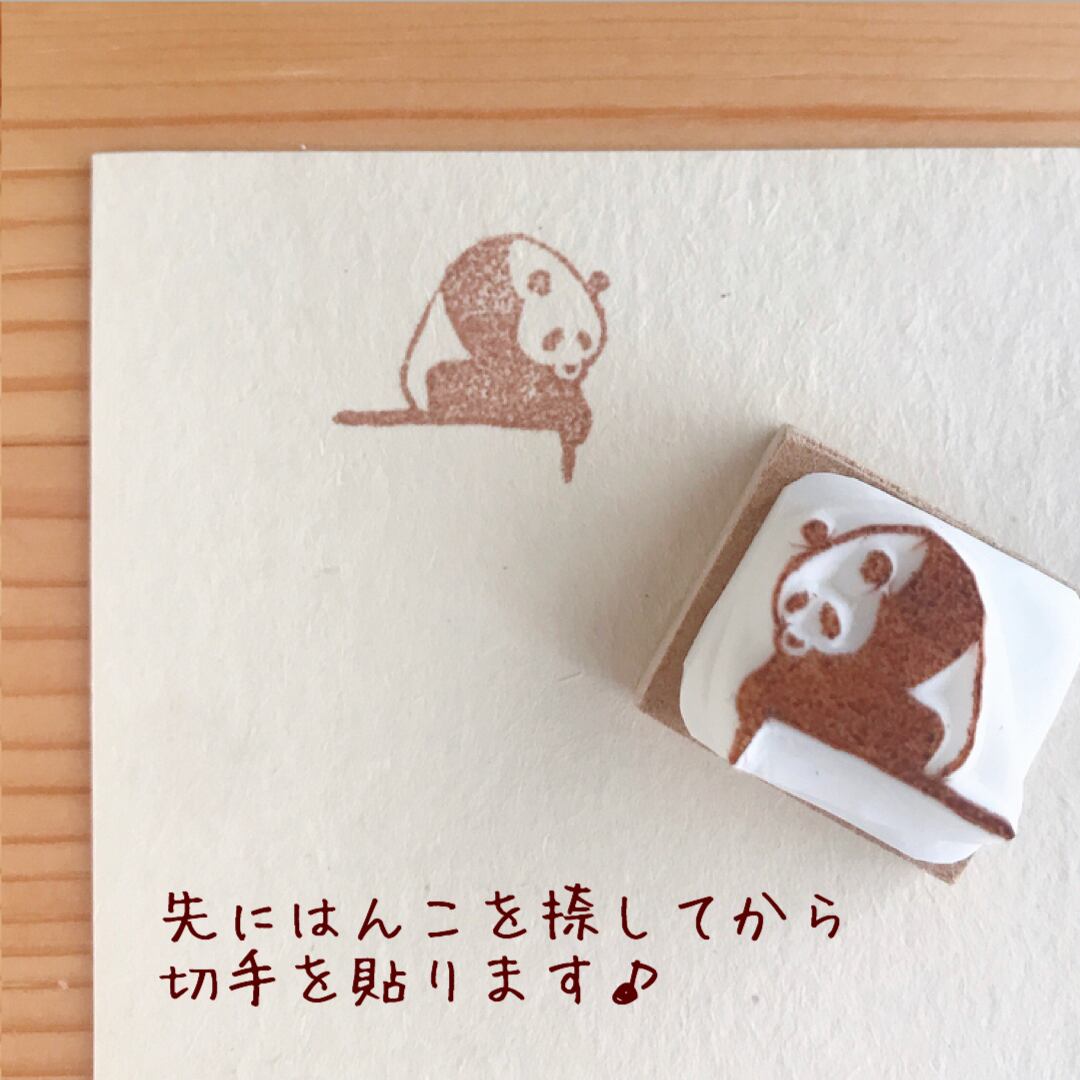 先にはんこを捺してから
切手を貼ります♪